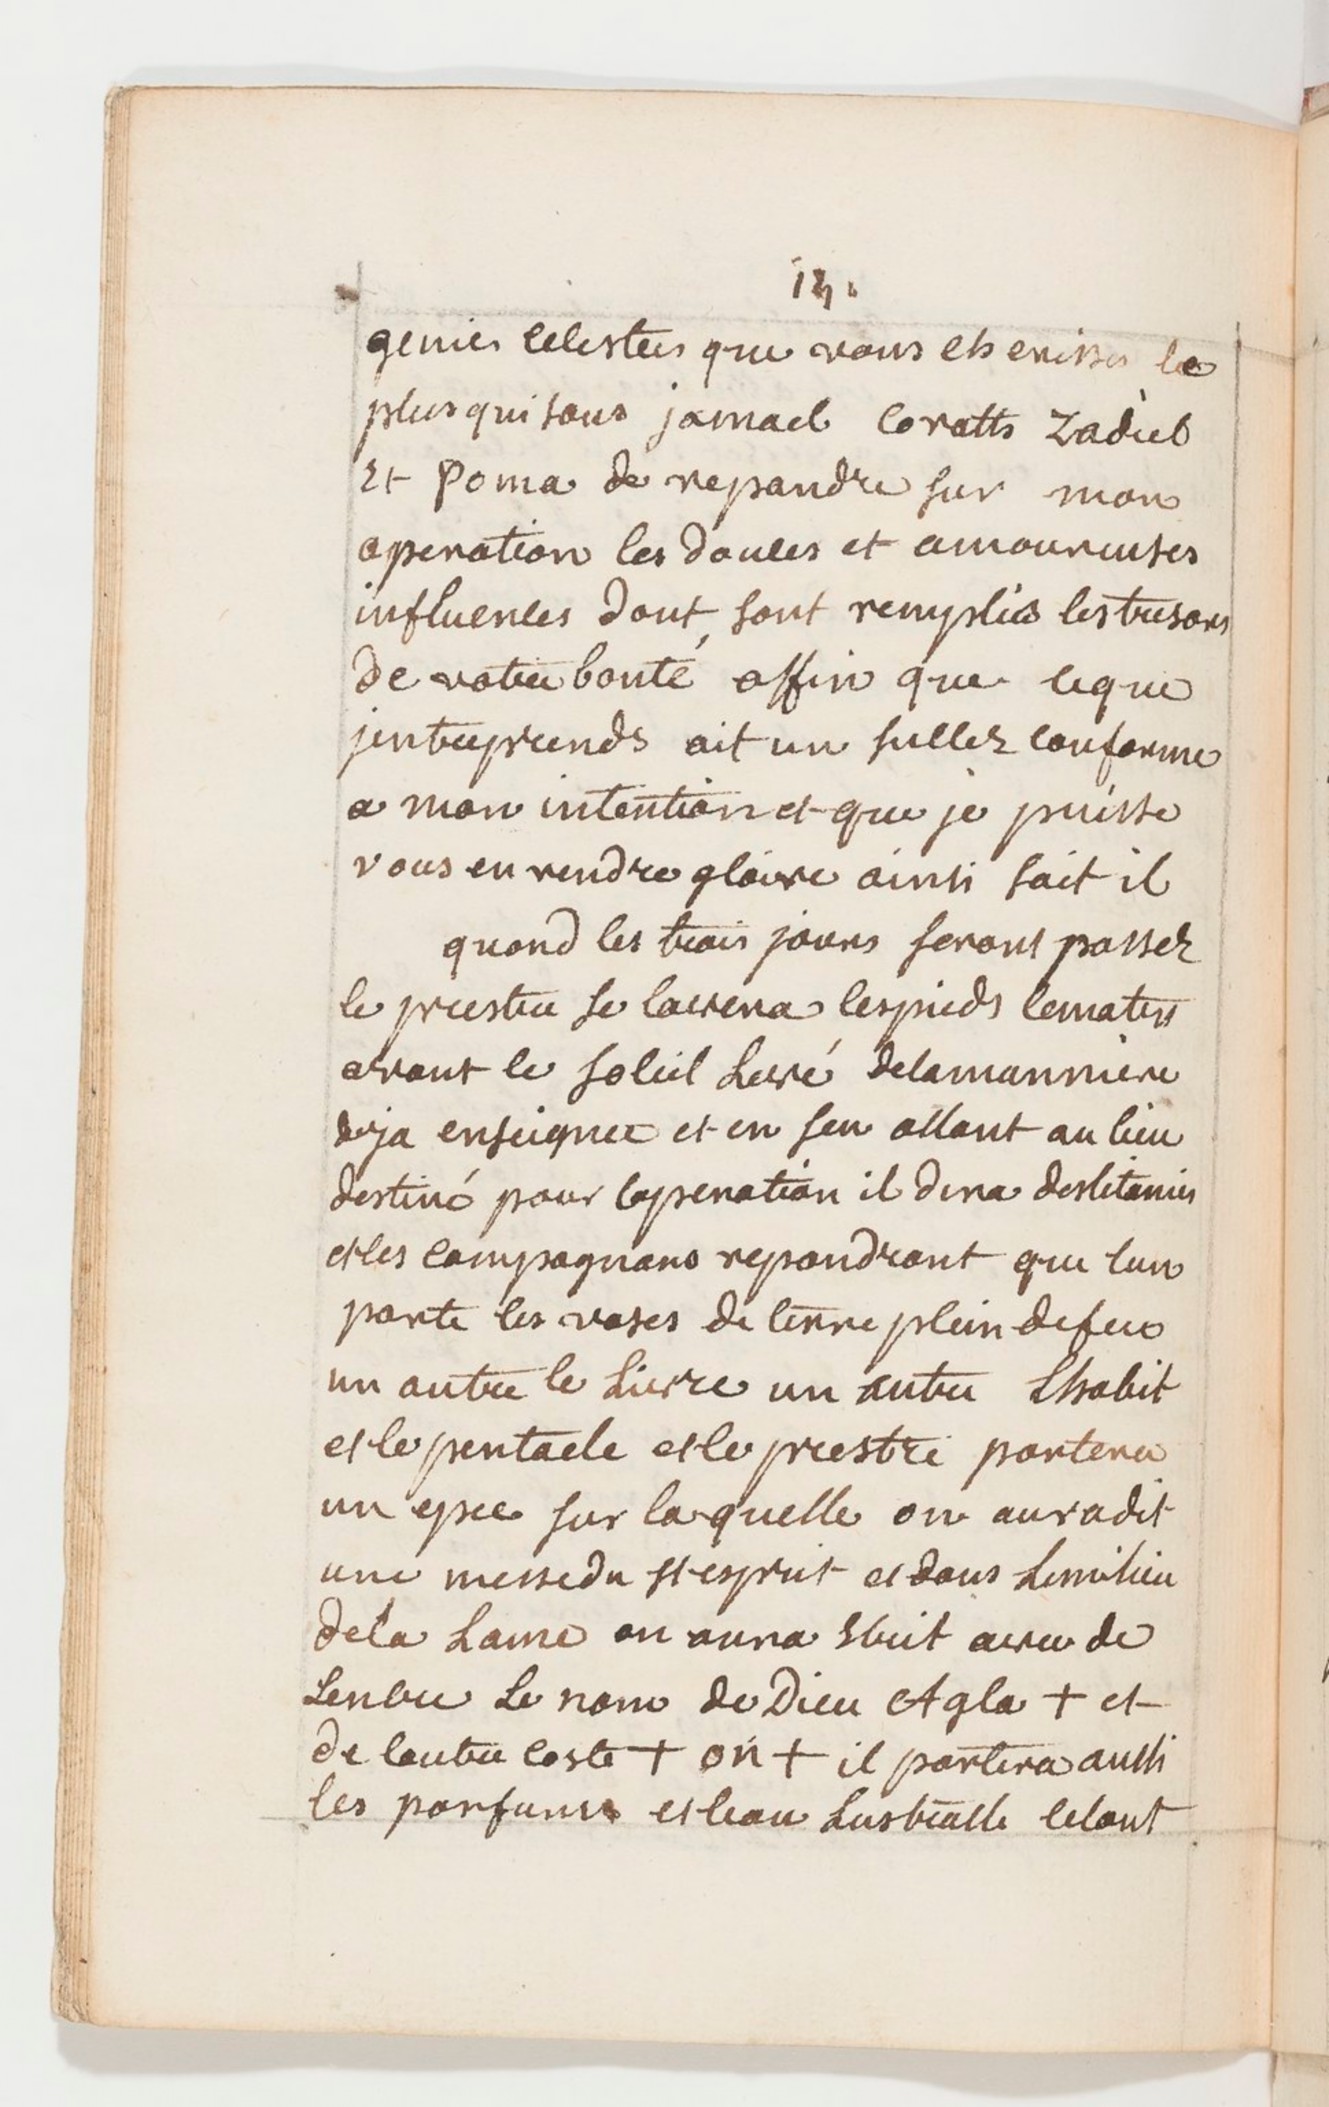 14.
genies celestes que vous cherisses le
plus qui sons jamael Coratts Zadiel
Et Poma de repandre sur mon
operation les douces et amoureuses
influences dont sont remplis les tresors
de votre bonté affin que ceque
jentreprends ait un succez conforme
a mon intention et que je puisse
vous en rendre gloire ainsi soit il
quand les trois jours seront passez
le prestre se lavera lespieds lematin
avant le soleil Levé delamanniere
deja enseignee et en sen allant au lieu
destiné pour loperation il dira deslitanies
et les compagnons repondront que lun
porte les vases de terre plein defeu
un autre le Livre un autre Lhabit
et le pentacle et le prestre portera
un epée sur laquelle on auradit
une messedu st esprit et dans Lemilieu
dela Lame on aura Ecrit avec de
Lencre Le nom de Dieu Agla + et
de lautre coste + on + il portera aussi
les parfums et leau Lustralle lelont